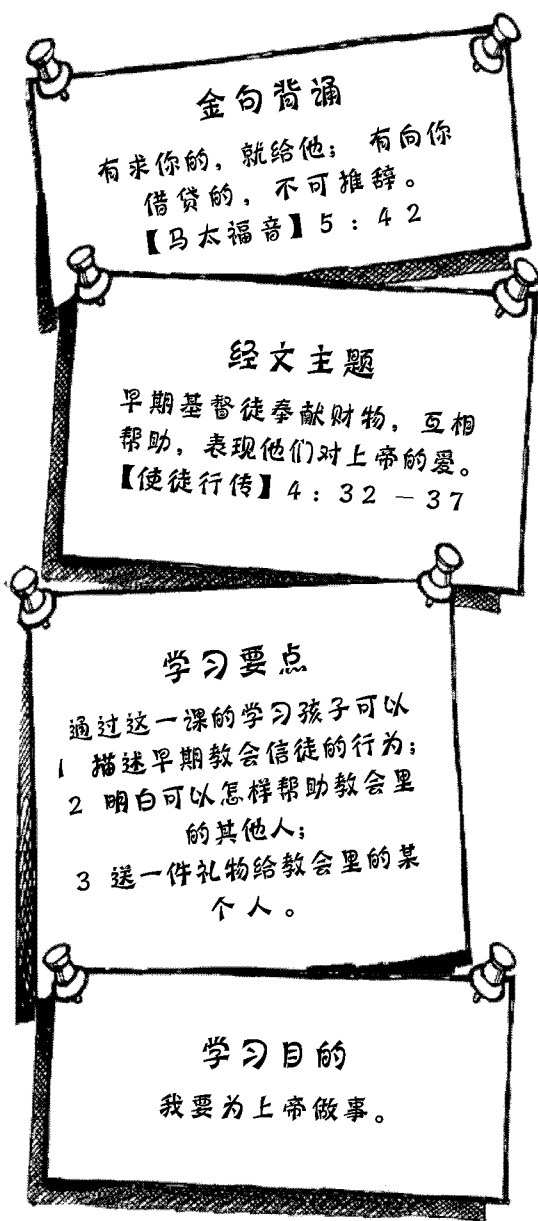 金句背诵
有求你的，就给他； 有向你
借贷的，不可推辞。
【马太福音】5：42
经文主题
早期基督徒奉献财物，互相
帮助，表现他们对上帝的爱。
【使徒行传】4：32－37
学习要点
通过这一课的学习孩子可以
1 描述早期教会信徒的行为；
2 明白可以怎样帮助教会里
的其他人；
3 送一件礼物给教会里的某
个人。
学习目的
我要为上帝做事。